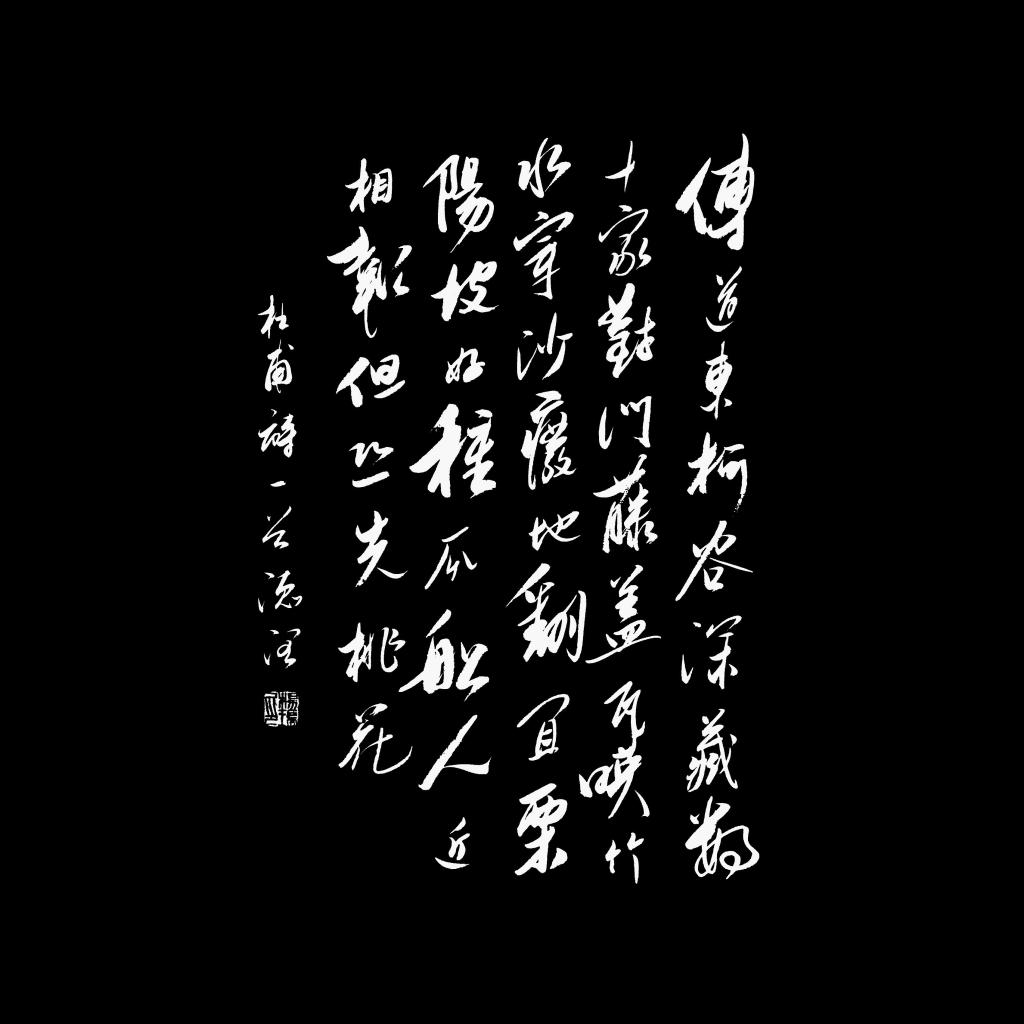 傳道東柯谷深藏數
十家對門藤盖瓦暎竹
水穿沙瘦地翻宜粟
陽坡好種瓜船人近
相報但恐失桃花
杜甫詩一首